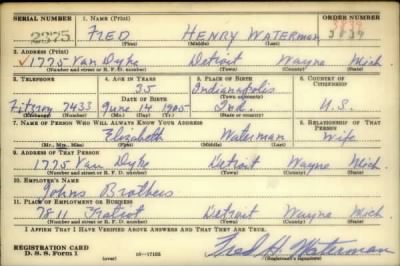 SERIAL NUMBER 1. NAME (Print) ORDER NUMBER
2375 FRED HENRY WATERMAN
(First) (Middle) (Last)
2. ADDRESS (Print)
1775 Van Dyke Detroit Wayne Mich.
(Number and street or R. F. D. number) (Town) (County) (State)
3. TELEPHONE 4. AGE IN YEARS 5. PLACE OF BIRTH 6. COUNTRY OF CITIZENSHIP
35 Indianapolis
DATE OF BIRTH (Town or county)
Fitzroy 7433 June 14 1905 Ind. U.S.
(Exchange) (Number) (Mo.) (Day) (Yr.) (State or country)
7. NAME OF PERSON WHO WILL ALWAYS KNOW YOUR ADDRESS 8. RELATIONSHIP OF THAT PERSON
Elizabeth Waterman Wife
(Mr., Mrs., Miss) (First) (Middle) (Last)
9. ADDRESS OF THAT PERSON
1775 Van Dyke Detroit Wayne Mich.
(Number and street or R. F. D. number) (Town) (County) (State)
10. EMPLOYER'S NAME
Johns Brothers
11. PLACE OF EMPLOYMENT OR BUSINESS
7811 Gratiot Detroit Wayne Mich
(Number and street or R. F. D. number) (Town) (County) (State)
I AFFIRM THAT I HAVE VERIFIED ABOVE ANSWERS AND THAT THEY ARE TRUE.
REGISTRATION CARD
D. S. S. Form 1 Fred H Waterman
(Registrant's signature)